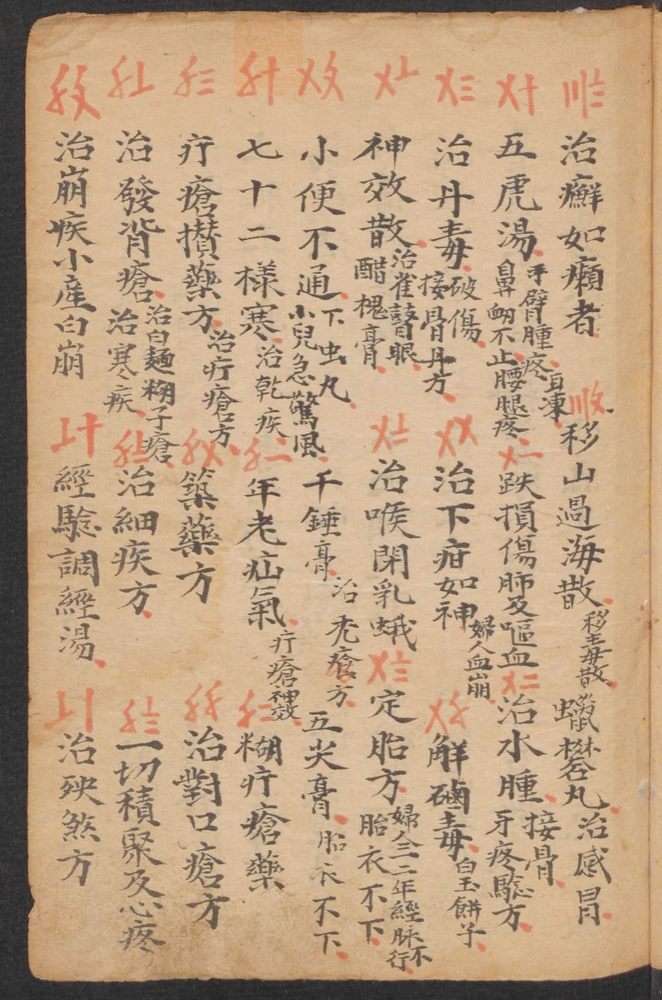 〣〨 治癬如癩者 治感冒
移山過海散 移毒散 蠟礬丸 治感冒
〤十 五虎湯 手臂腫疼 鼻衂不止 腰腿疼 自涷
〤〡 跌損傷肺及嘔血
〤〢 治水腫 接骨 牙疼騐方
〤〣 治丹毒 破傷 接骨丹方
〤〤 治下疳如神 婦人血崩
〤〥 解磠毒 白玉餅子
〤〦 神效散 治雀瞽眼 醋槐膏
〤〧 治喉閉乳蛾
〤〨 定胎方 婦人三二年經脉不行 胎衣不下
小便不通 下虫丸 小兒急驚風
千錘膏 治禿瘡方
五尖膏 胎衣不下
〥十 七十二樣寒 治乾疾
〥〡 年老疝氣 疔瘡神效
〥〢 糊疔瘡藥
〥〣 疔瘡攅藥方 治疔瘡方
〥〤 箍藥方
〥〥 治對口瘡方
〥〦 治發背瘡 治白麵糊子瘡 治寒疾
〥〧 治細疾方
〥〨 一切積聚及心疼
〥〩 治崩疾小產白崩
〦十 經騐調經湯
〦〡 治殃煞方